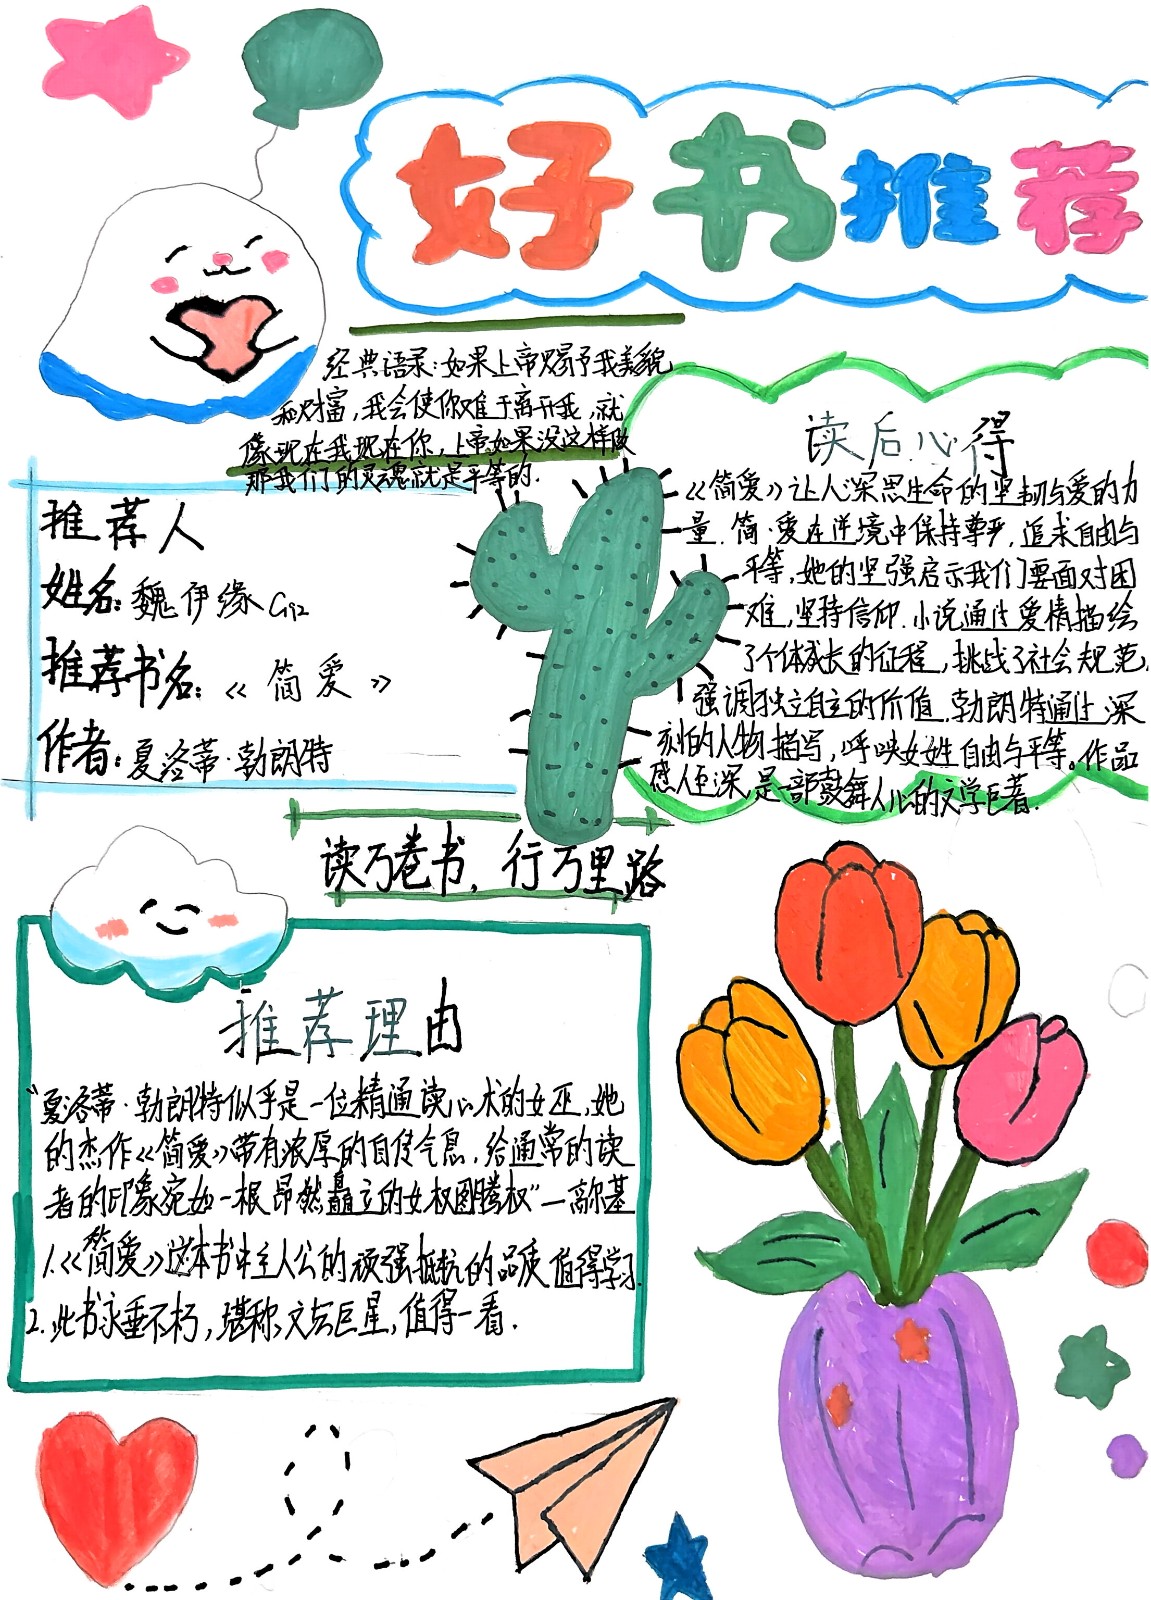 好书推荐
经典语录:如果上帝赐予我美貌
和财富,我会使你难于离开我,就
像现在我现在你,上帝如果没这样做
那我们的灵魂就是平等的.
推荐人
姓名:魏伊缘
推荐书名:《简爱》
作者:夏洛蒂·勃朗特
读后心得
《简爱》让人深思生命的坚韧与爱的力
量.简·爱在逆境中保持尊严,追求自由与
平等,她的坚强启示我们要面对困
难,坚持信仰.小说通过爱情描绘
了个体成长的征程,挑战了社会规范,
强调独立自主的价值.勃朗特通过深
刻的人物描写,呼唤女性自由与平等。作品
感人至深,是一部鼓舞人心的文学巨著.
读万卷书,行万里路
推荐理由
"夏洛蒂·勃朗特似乎是一位精通读心术的女巫,她
的杰作《简爱》带有浓厚的自传气息.给通常的读
者的印象宛如一根昂然矗立的女权图腾权"—高尔基
1.《简爱》这本书中主人公的顽强抵抗的品质值得学习.
2.此书永垂不朽,堪称文坛巨星,值得一看.